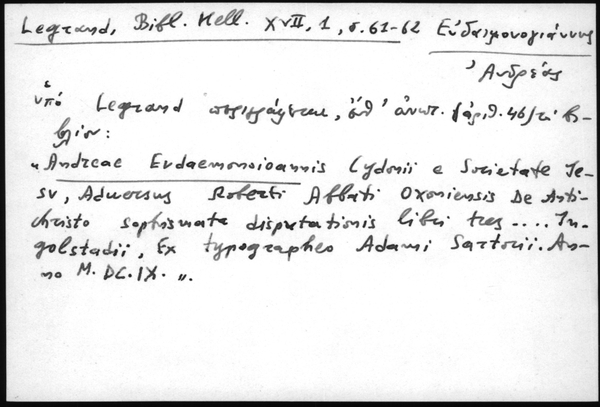 Legrand, Bibl. Hell. XVII, 1, σ. 61-62 Εὐδαιμονογιάννης
Ἀνδρέας
ὑπό Legrand περιγράφεται, ἔνθ' ἀνωτ. (ἀριθ. 46) τό βι-
βλίον:
"Andreae Eudaemonoioannis Cydonii e Societate Ie-
su, Aduersus Roberti Abbati Oxoniensis De Anti-
christo sophismata disputationis libri tres .... In-
golstadii, Ex typographeo Adami Sartorii. An-
no M. DC. IX. ".